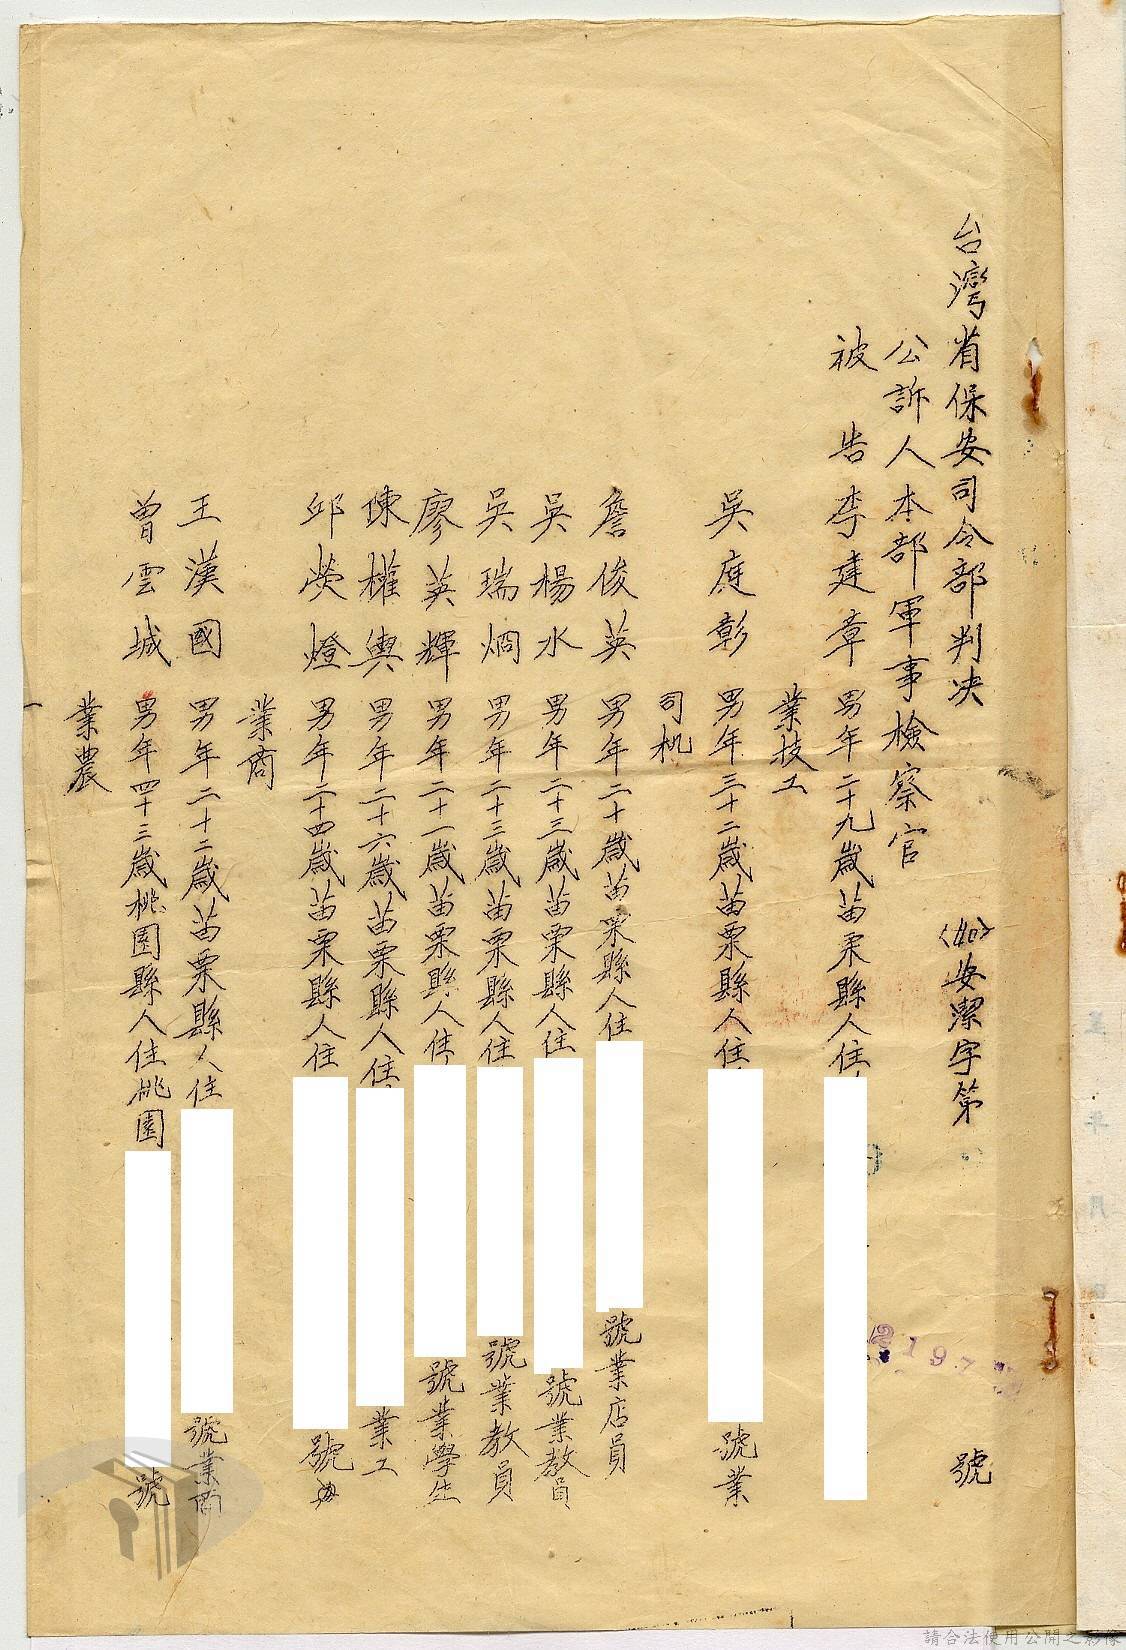 台灣省保安司令部判決 (40)安潔字第 號
公訴人本部軍事檢察官
被告李建章 男年二十九歲苗栗縣人住
業技工
吳庭彰 男年三十二歲苗栗縣人住 號業
司机
詹俊英 男年二十歲苗栗縣人住 號業店員
吳楊水 男年二十三歲苗栗縣人住 號業教員
吳瑞烱 男年二十三歲苗栗縣人住 號業教員
廖英輝 男年二十一歲苗栗縣人住 號業學生
陳權輿 男年二十六歲苗栗縣人住 業工
邱熒燈 男年二十四歲苗栗縣人住 號
業商
王漢國 男年二十二歲苗栗縣人住 號業商
曾雲城 男年四十三歲桃園縣人住桃園 號
業農
一
請合法使用公開之影像